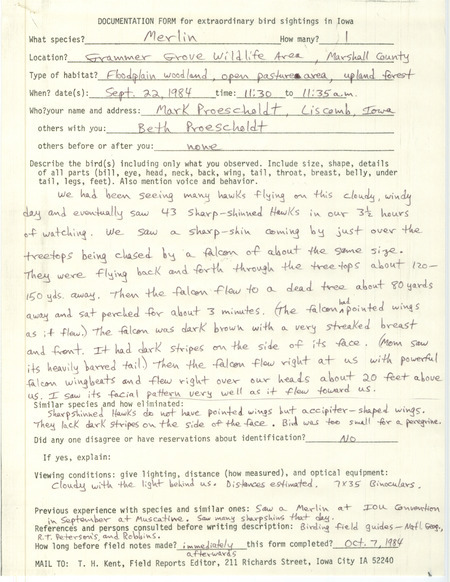 DOCUMENTATION FORM for extraordinary bird sightings in Iowa
What species? Merlin How many? 1
Location? Grammer Grove Wildlife Area, Marshall County
Type of habitat? Floodplain woodland, open pasture area, upland forest
When? date(s): Sept. 22, 1984 time: 11:30 to 11:35 a.m.
Who?your name and address: Mark Proescholdt, Liscomb, Iowa
others with you: Beth Proescholdt
others before or after you: none
Describe the bird(s) including only what you observed. Include size, shape, details
of all parts (bill, eye, head, neck, back, wing, tail, throat, breast, belly, under
tail, legs, feet). Also mention voice and behavior.
We had been seeing many hawks flying on this cloudy, windy
day and eventually saw 43 Sharp-shinned Hawks in our 3½ hours
of watching. We saw a sharp-shin coming by just over the
treetops being chased by a falcon of about the same size.
They were flying back and forth through the treetops about 120-
150 yds. away. Then the falcon flew to a dead tree about 80 yards
away and sat perched for about 3 minutes. (The falcon had pointed wings
as it flew.) The falcon was dark brown with a very streaked breast
and front. It had dark stripes on the side of its face. (Mom saw
its heavily barred tail.) Then the falcon flew right at us with powerful
falcon wingbeats and flew right over our heads about 20 feet above
us. I saw its facial pattern very well as it flew toward us.
Similar species and how eliminated:
Sharpshinned Hawks do not have pointed wings but accipiter-shaped wings.
They lack dark stripes on the side of the face. Bird was too small for a peregrine.
Did any one disagree or have reservations about identification? No
If yes, explain:
Viewing conditions: give lighting, distance (how measured), and optical equipment:
Cloudy with the light behind us. Distances estimated. 7x35 Binoculars.
Previous experience with species and similar ones: Saw a Merlin at IOU Convention
in September at Muscatine. Saw many sharpshins that day.
References and persons consulted before writing description: Birding field guides - Natl Geog.,
R.T. Peterson's, and Robbins.
How long before field notes made? immediately afterwards this form completed? Oct. 7, 1984
MAIL TO: T. H. Kent, Field Reports Editor, 211 Richards Street, Iowa City IA 52240